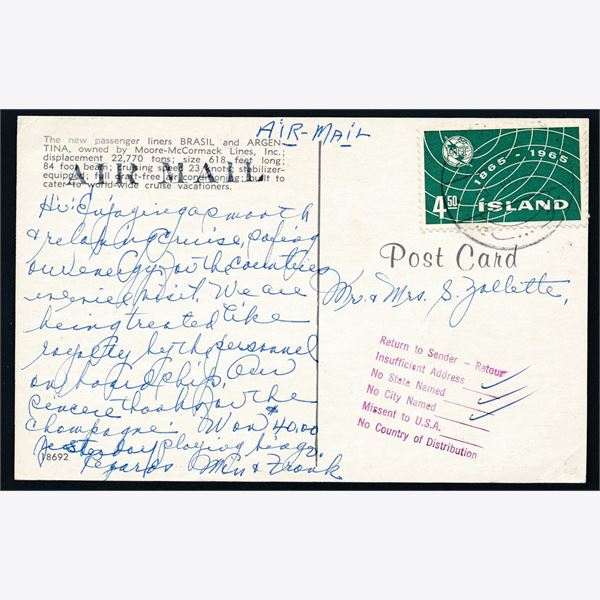 AIR-MAIL
The new passenger liners BRASIL and ARGEN-
TINA, owned by Moore-McCormack Lines, Inc.;
displacement 22,770 tons; size 618 feet long;
84 foot beam; cruising speed 23 knots; stabilizer-
equipped; first-free conditioning; built to
cater to world-wide cruise vacationers.
AIR MAIL
Hi: Enjoying a smooth
& relaxing cruise, saving
our energy for the countries
we will visit. We are
being treated like
royalty by the personnel
on board ship. Our
sincere thanks for the
champagne. Won $40.00
yesterday playing bingo.
Regards Min & Frank
18692
1865 - 1965
4.50 ÍSLAND
Post Card
Mr. & Mrs. S. Zallette,
Return to Sender - Retour
Insufficient Address
No State Named
No City Named
Missent to U.S.A.
No Country of Distribution